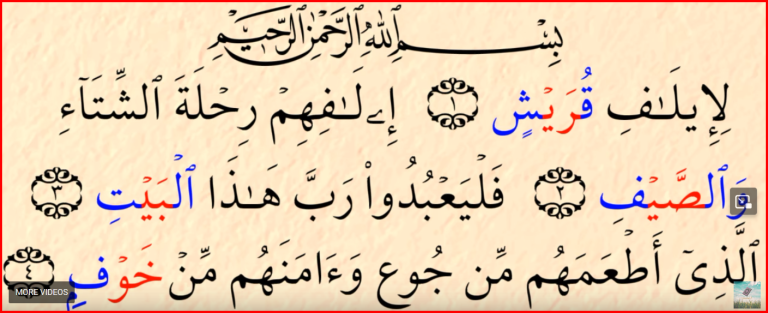 بِسْمِ ٱللَّهِ ٱلرَّحْمَٰنِ ٱلرَّحِيمِ
لِإِيلَـٰفِ قُرَيْشٍ ١ إِۦلَـٰفِهِمْ رِحْلَةَ ٱلشِّتَآءِ
وَٱلصَّيْفِ ٢ فَلْيَعْبُدُوا۟ رَبَّ هَـٰذَا ٱلْبَيْتِ ٣
ٱلَّذِىٓ أَطْعَمَهُم مِّن جُوعٍ وَءَامَنَهُم مِّنْ خَوْفٍۭ ٤
MORE VIDEOS